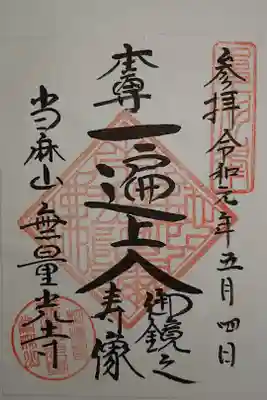 参拝令和元年五月四日
本尊一遍上人御鏡之寿像
当麻山無量光寺